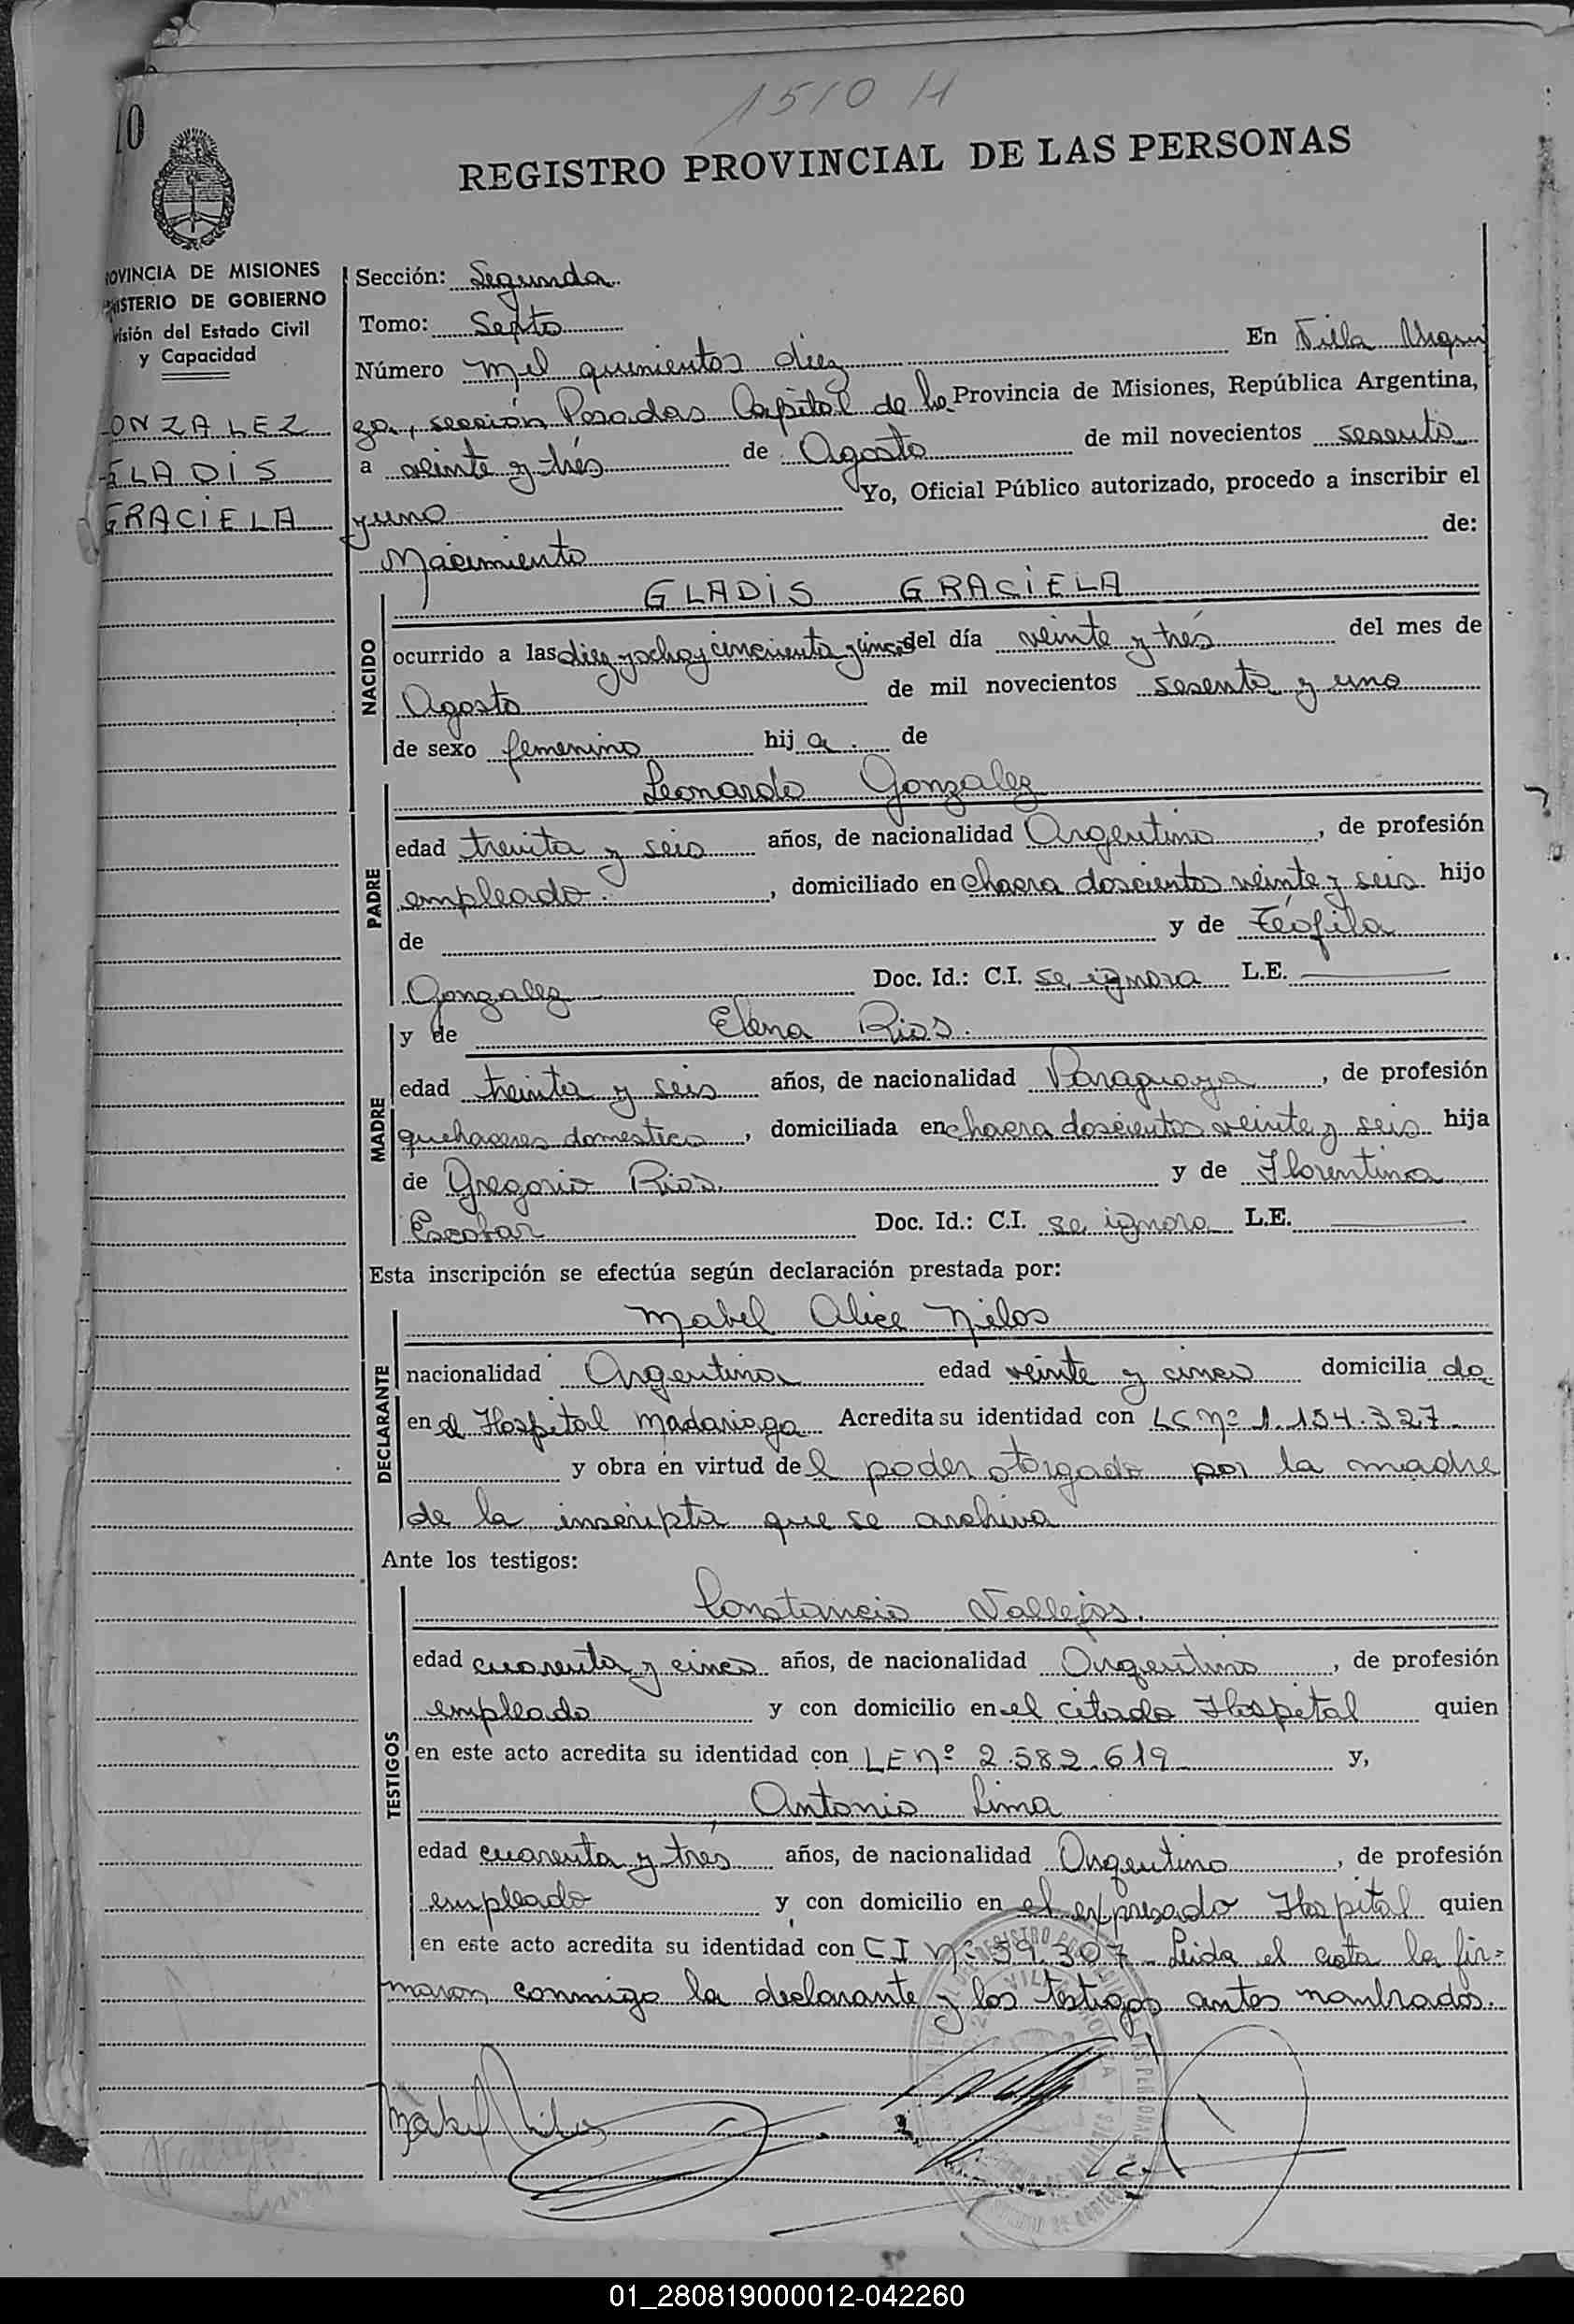 1510 H
10
REGISTRO PROVINCIAL DE LAS PERSONAS
OVINCIA DE MISIONES
ISTERIO DE GOBIERNO
visión del Estado Civil
y Capacidad
ONZALEZ
GLADIS
GRACIELA
Sección: Segunda
Tomo: Septo
Número mil quinientos diez En Villa Urqui
za, sección Posadas Capital de la Provincia de Misiones, República Argentina,
a veinte y trés de Agosto de mil novecientos sesenta
y uno Yo, Oficial Público autorizado, procedo a inscribir el
Nacimiento de:
NACIDO
GLADIS GRACIELA
ocurrido a las diez y ocho y cincuenta y cinco del día veinte y trés del mes de
Agosto de mil novecientos sesenta y uno
de sexo femenino hij a. de
PADRE
Leonardo Gonzalez
edad treinta y seis años, de nacionalidad Argentino, de profesión
empleado., domiciliado en chacra doscientos veinte y seis hijo
de y de Teófila
Gonzalez Doc. Id.: C.I. se ignora L.E.
MADRE
y de Elena Rios.
edad treinta y seis años, de nacionalidad Paraguaya, de profesión
quehaceres domestico, domiciliada en chacra doscientos veinte y seis hija
de Gregorio Rios. y de Florentina
Escobar Doc. Id.: C.I. se ignora L.E.
Esta inscripción se efectúa según declaración prestada por:
DECLARANTE
Mabel Alice Nilos
nacionalidad Argentina edad veinte y cinco domicilia da
en el Hospital Madariaga Acredita su identidad con LC Nº 1.154.327.
y obra en virtud de l poder otorgado por la madre
de la inscripta que se archiva
Ante los testigos:
TESTIGOS
Constancio Vallejos.
edad cuarenta y cinco años, de nacionalidad Argentino, de profesión
empleado y con domicilio en el citado Hospital quien
en este acto acredita su identidad con LE nº 2.582.619 y,
Antonio Lima
edad cuarenta y trés años, de nacionalidad Argentino, de profesión
empleado y con domicilio en el expresado Hospital quien
en este acto acredita su identidad con C I Nº 59.307 Leida el acta la fir=
maron conmigo la declarante y los testigos antes nombrados.
Mabel Nilos
01_280819000012-042260